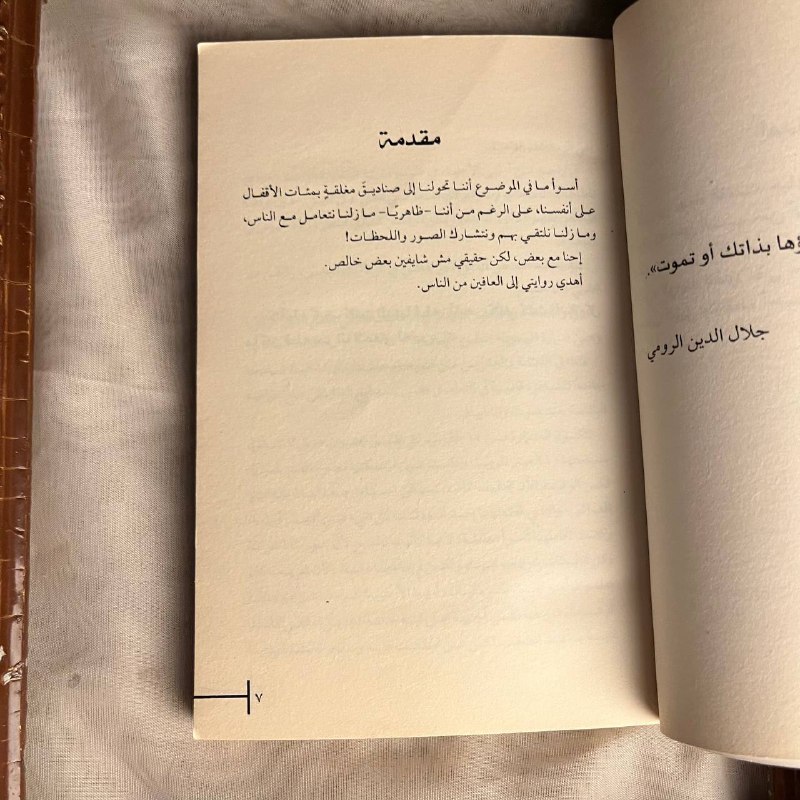 ؤها بذاتك أو تموت».
جلال الدين الرومي
مقدمة
أسوأ ما في الموضوع أننا تحولنا إلى صناديقَ مغلقةٍ بمئات الأقفال
على أنفسنا، على الرغم من أننا -ظاهريًا- ما زلنا نتعامل مع الناس،
وما زلنا نلتقي بهم ونتشارك الصور واللحظات!
إحنا مع بعض، لكن حقيقي مش شايفين بعض خالص.
أهدي روايتي إلى العافين من الناس.
٧